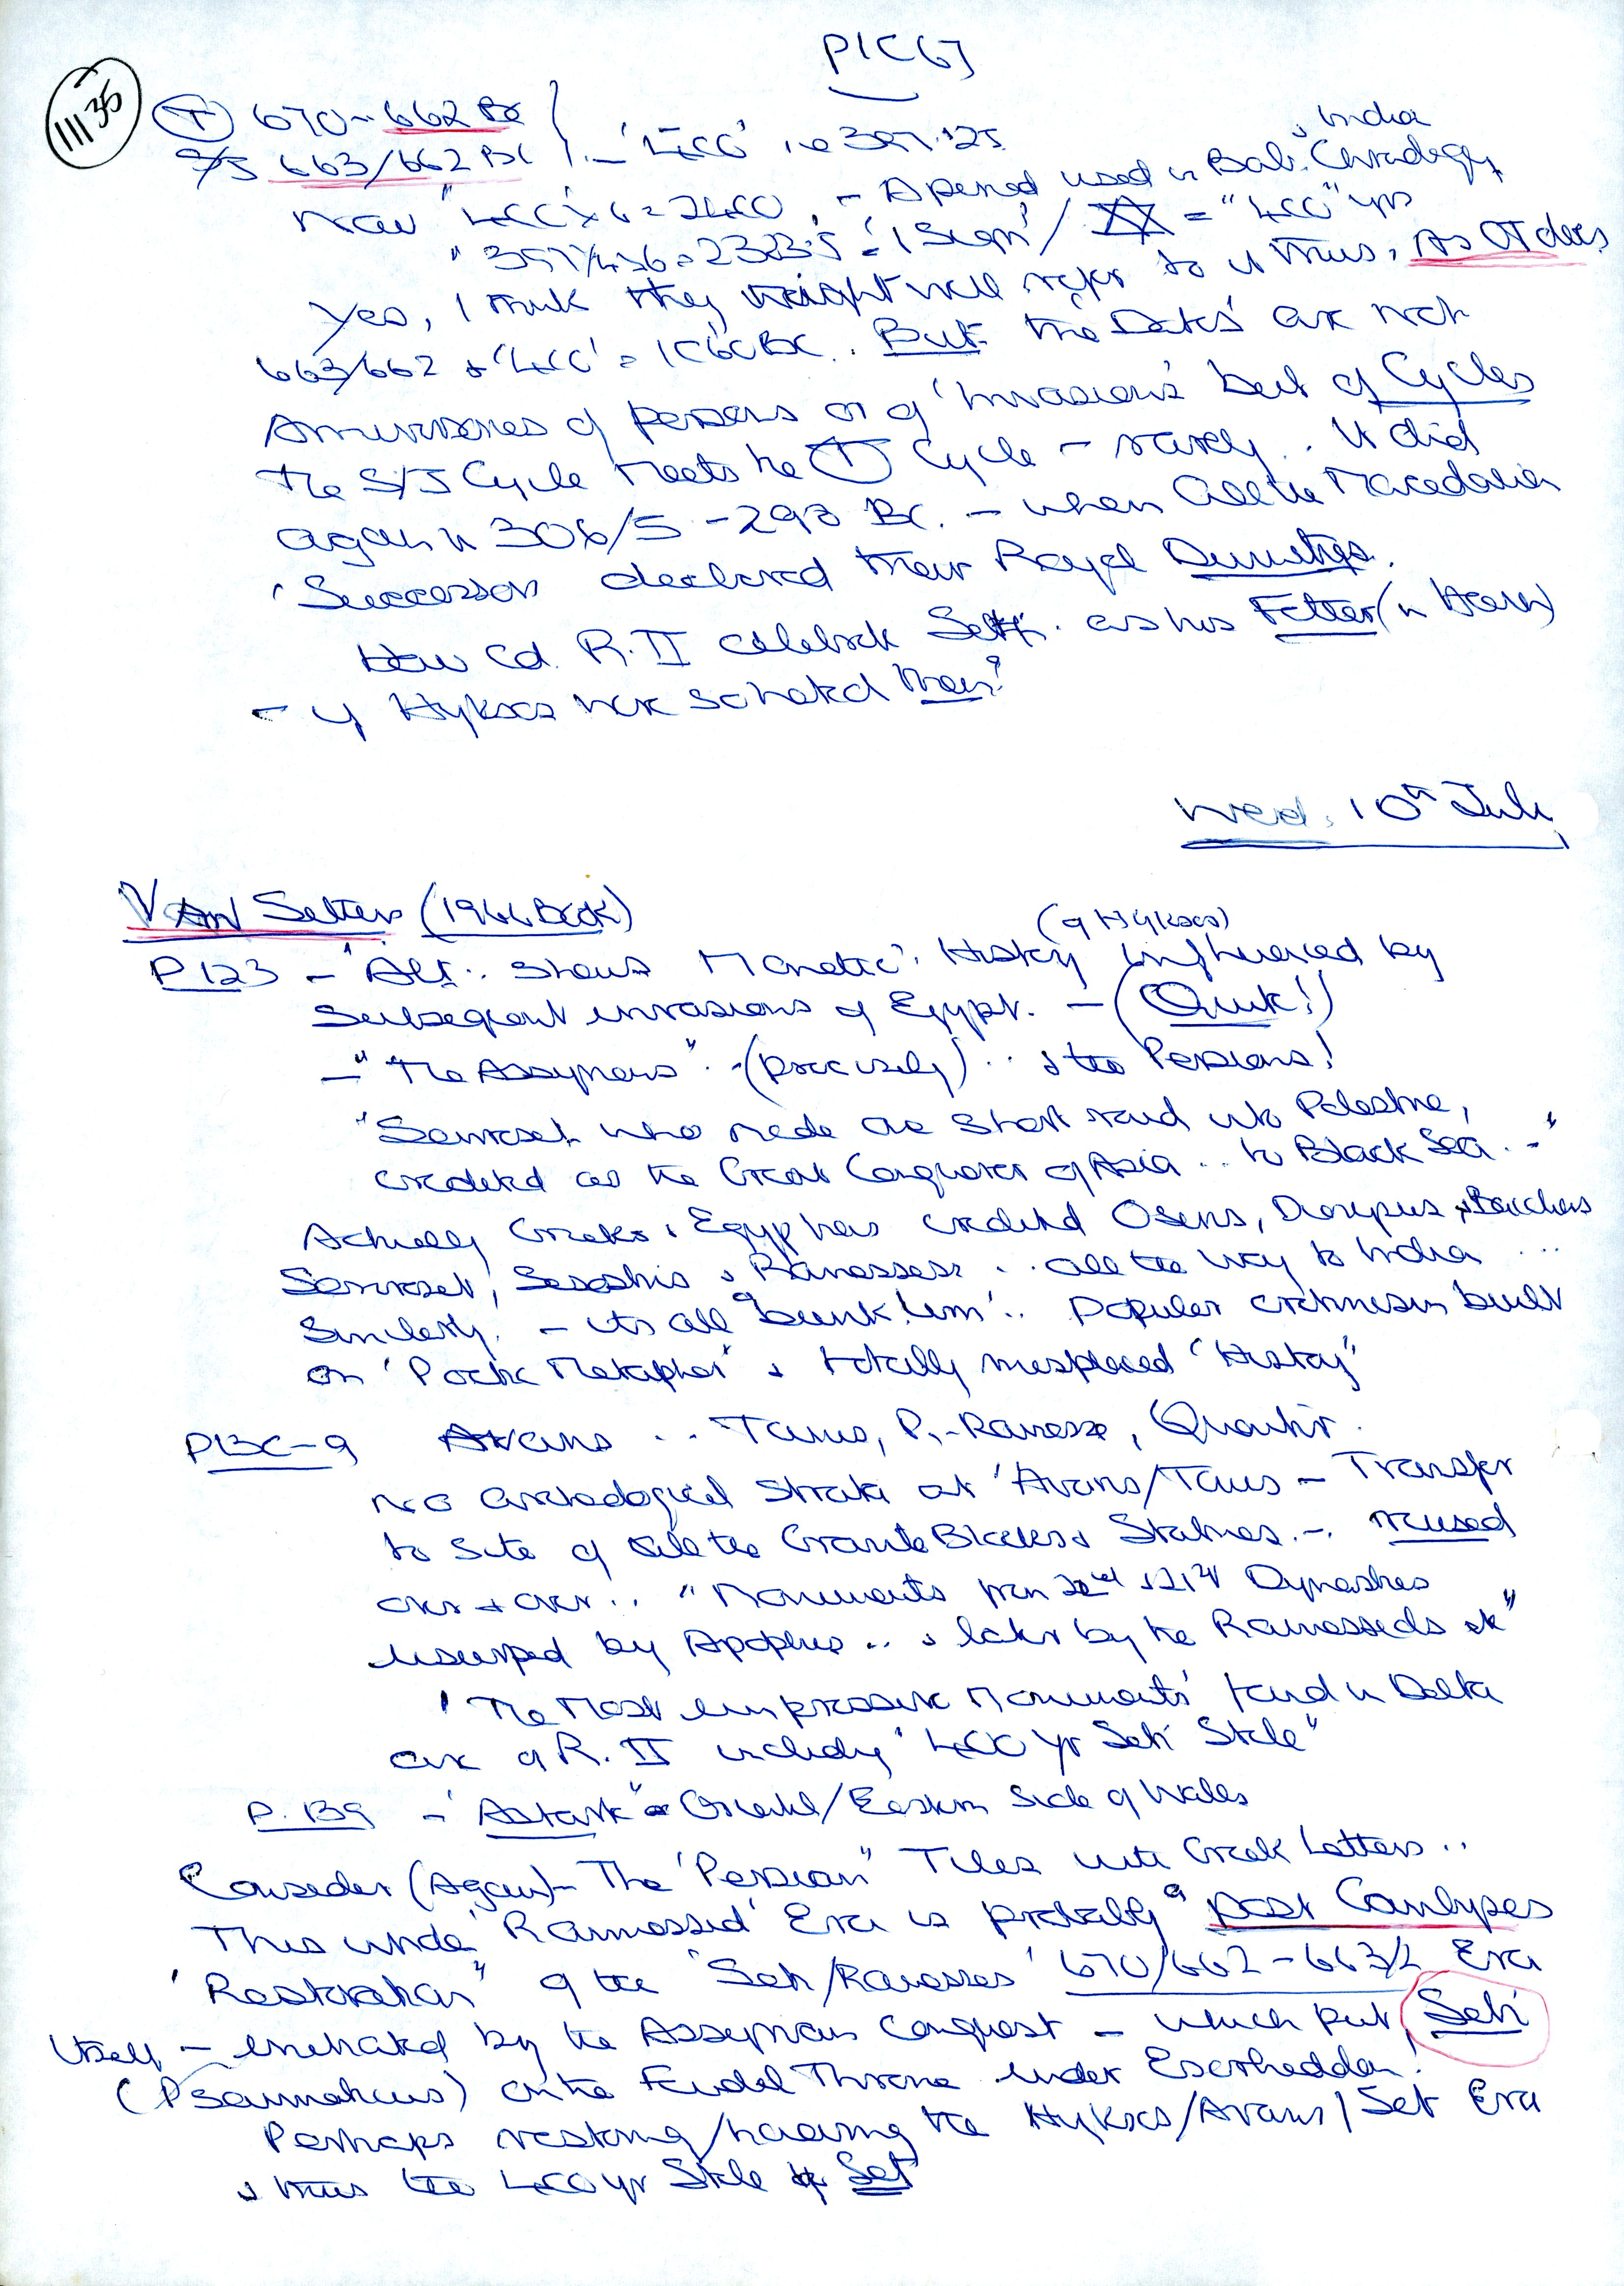 P1C(7)
III 35
(T) 670-662 BC
S/J 663/662 BC } - '400' i.e 397.125
& India
Now "400" x 6 = 2400, - A period used in Bab. Chronology
" 397/4x6 = 2383.5 = '1 Sign' / ✡ = "400" yrs
Yes, I think they might well refer to it thus, As OT does
663/662 + '400' = 1060 BC. But the 'Dates' are not
Anniversaries of persons or of 'Invasions' but of Cycles
The S/J Cycle meets the (T) Cycle - rarely. It did
again in 306/5 - 298 BC. - when all the Macedonian
'Successors' declared their Royal Dynasties.
How cd. R. II celebrate Seth. as his Father (in Heaven)
- if Hyksos were so hated then?
Wed. 10th July
VAN Seters (1966 Book)
(of Hyksos)
P123 - 'Alt.. shows Manetho's History influenced by
subsequent invasions of Egypt. - (Quite!)
- "The Assyrians". - (precisely) .. & the Persians!
"Senusret who made one short raid into Palestine,
credited as the Great Conqueror of Asia .. to Black Sea. -"
Actually Greeks & Egyptians credited Osiris, Dionysus & Bacchus
Senusret, Sesostris & Ramesses .. all the way to India ...
Similarly. - its all 'bunkum'..
on 'Poetic Metaphor' & totally misplaced 'History'
P130-9 Avaris .. Tanis, Pi-Ramesse, Quantir.
No archaeological strata at 'Avaris/Tanis - Transfer
to site of all the Granite Blocks & Statues. -. reused
over & over.. "Monuments from & 21st Dynasties
usurped by Apophis .. & later by the Ramessids etc"
'The most impressive Monuments' found in Delta
are of R. II including '400 yr Seth Stele"
P. 139 - 'Astarte" = Oriental/Eastern side of Walls
Consider (Again) - The 'Persian" Tiles with Greek Letters ..
This whole 'Ramessid' Era is probably a post Cambyses
'Restoration" of the 'Seti/Ramesses' 670/662 - 663/2 Era
Itself - initiated by the Assyrian Conquest - which put Seti
(Psammaticus) on the Feudal Throne under Esarhaddon!
Perhaps restoring/honouring the Hyksos/Avaris/Set Era
& thus the 400 yr Stele of Set